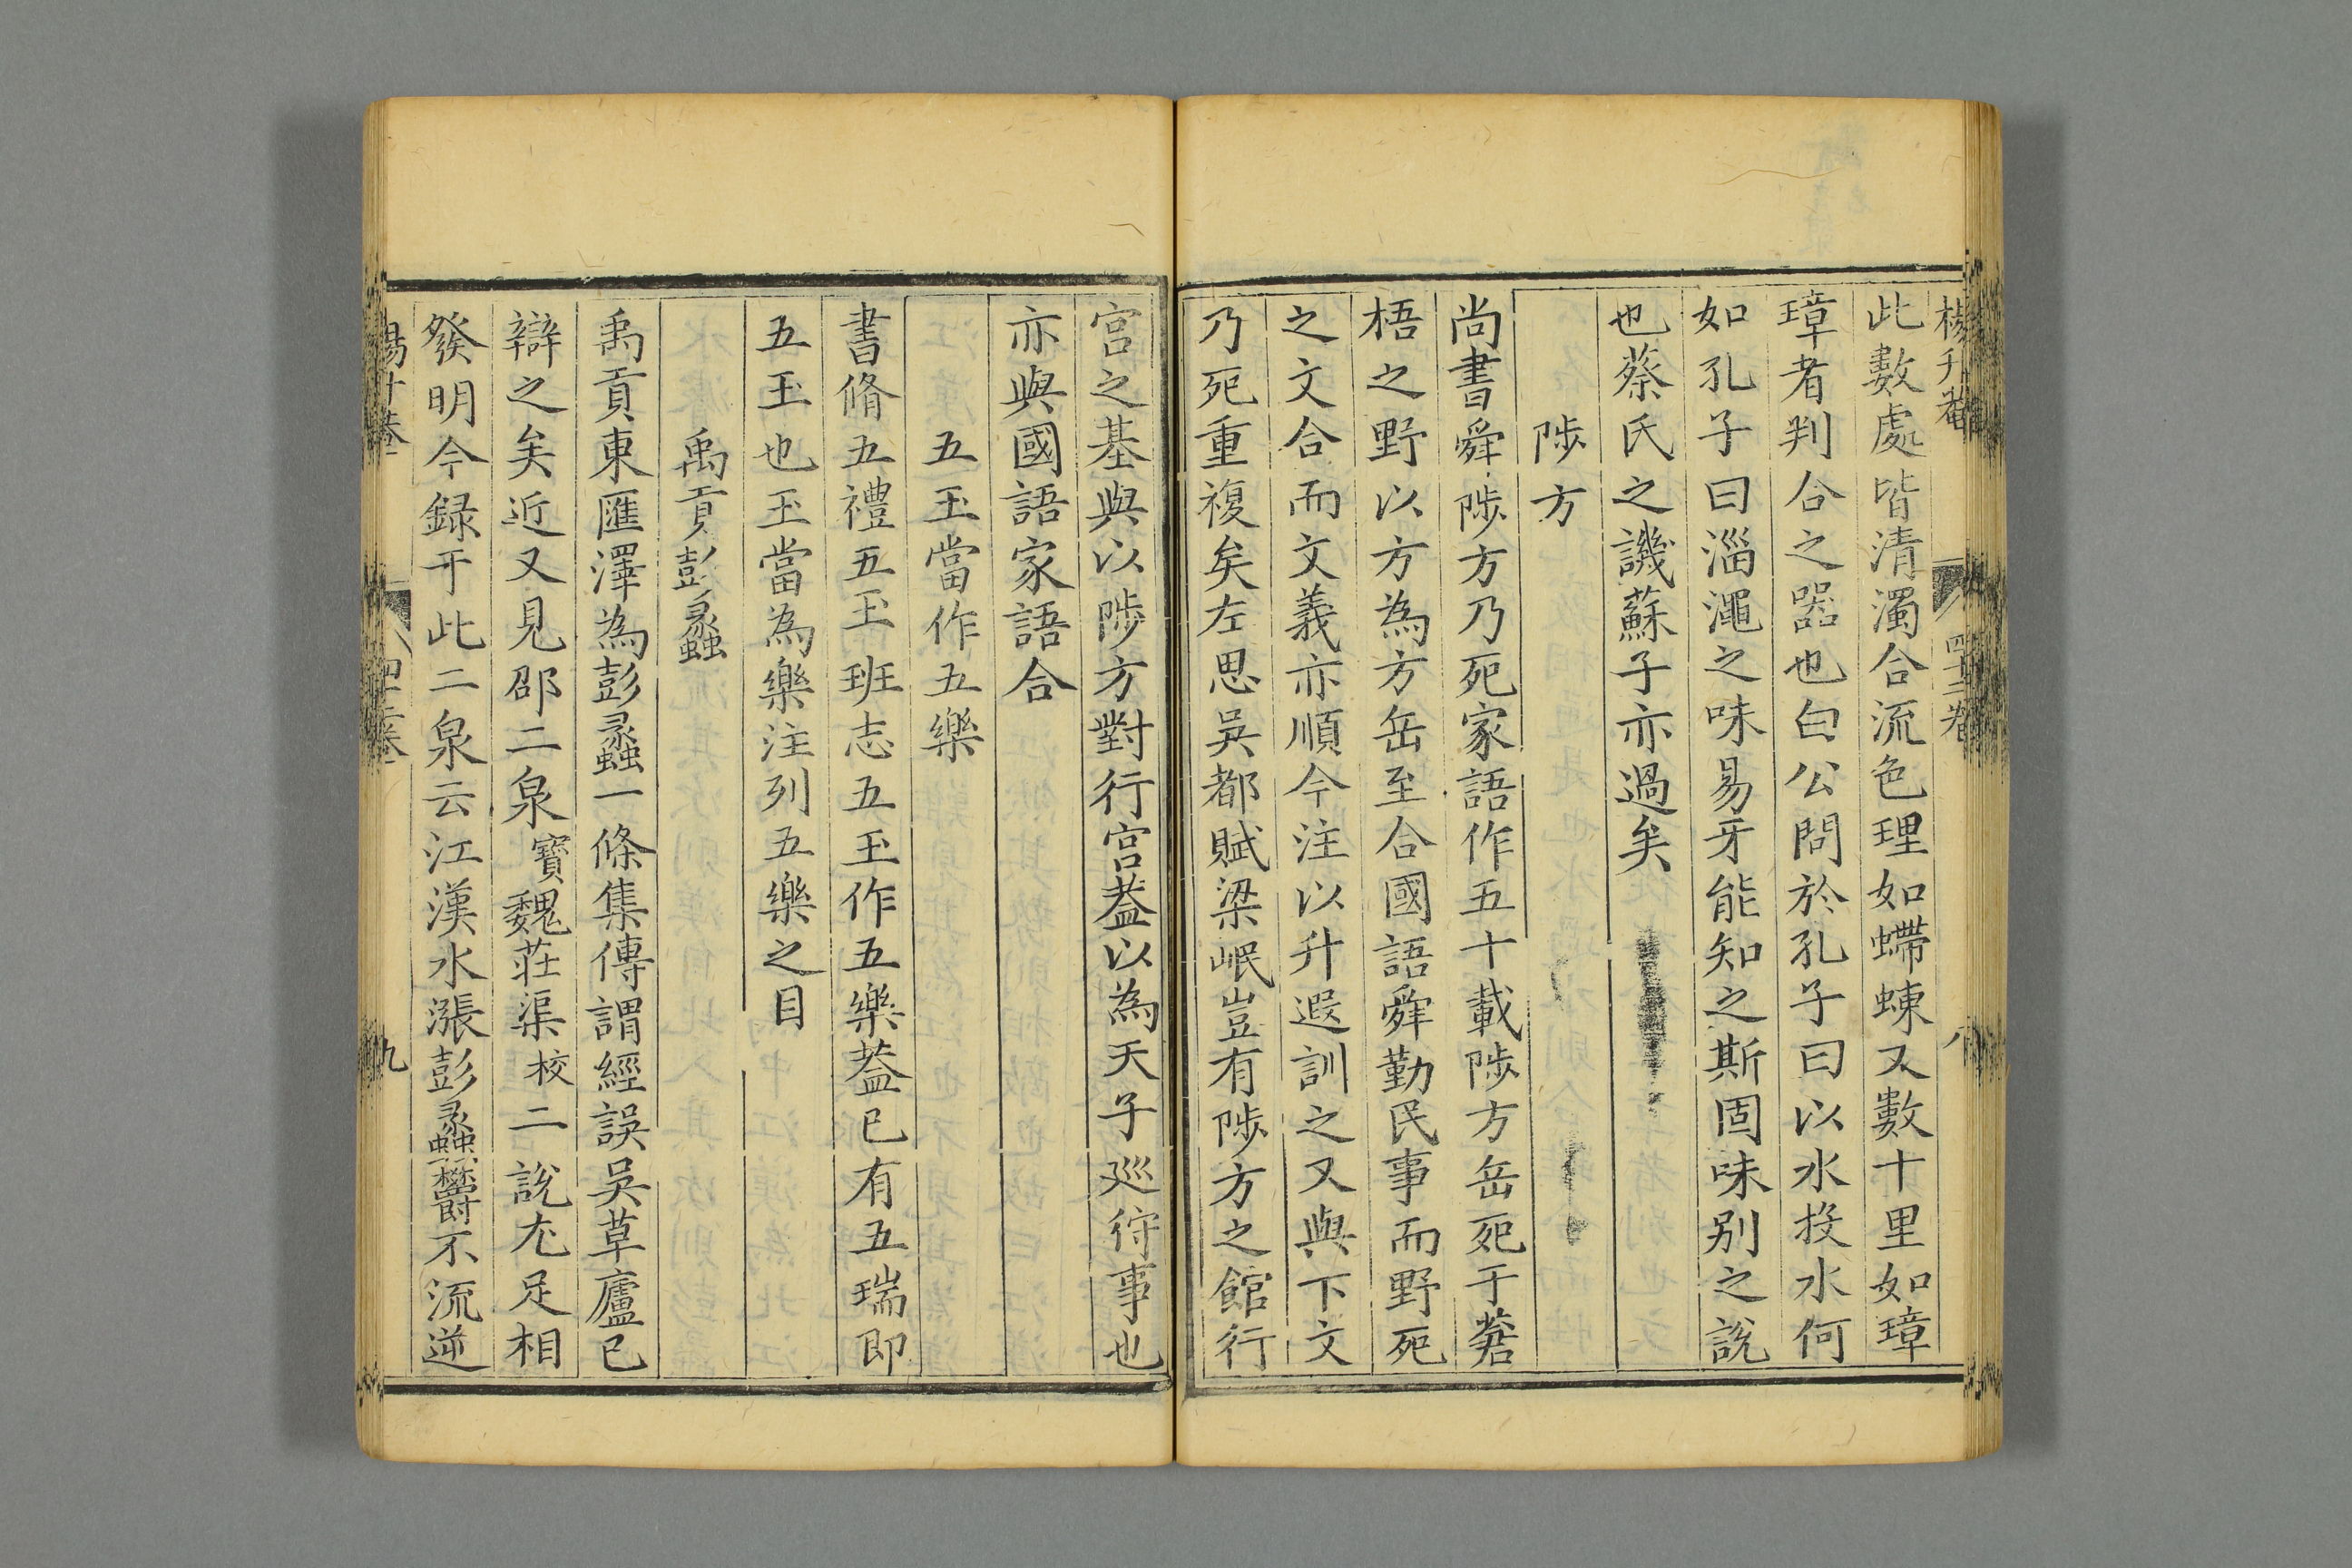 楊升菴 四十二卷 八
此數處皆清濁合流色理如螮蝀又數十里如璋
璋者判合之器也白公問於孔子曰以水投水何
如孔子曰淄澠之味易牙能知之斯固味別之說
也蔡氏之譏蘇子亦過矣
陟方
尚書舜陟方乃死家語作五十載陟方岳死于蒼
梧之野以方為方岳至合國語舜勤民事而野死
之文合而文義亦順今注以升遐訓之又與下文
乃死重複矣左思吳都賦梁岷豈有陟方之館行
宮之基與以陟方對行宮葢以為天子廵狩事也
亦與國語家語合
五玉當作五樂
書脩五禮五玉班志五玉作五樂葢已有五瑞即
五玉也玉當為樂注列五樂之目
禹貢彭蠡
禹貢東匯澤為彭蠡一條集傳謂經誤吳草廬已
辯之矣近又見邵二泉寶魏莊渠校二說尤足相
發明今録于此二泉云江漢水漲彭蠡欝不流逆
九